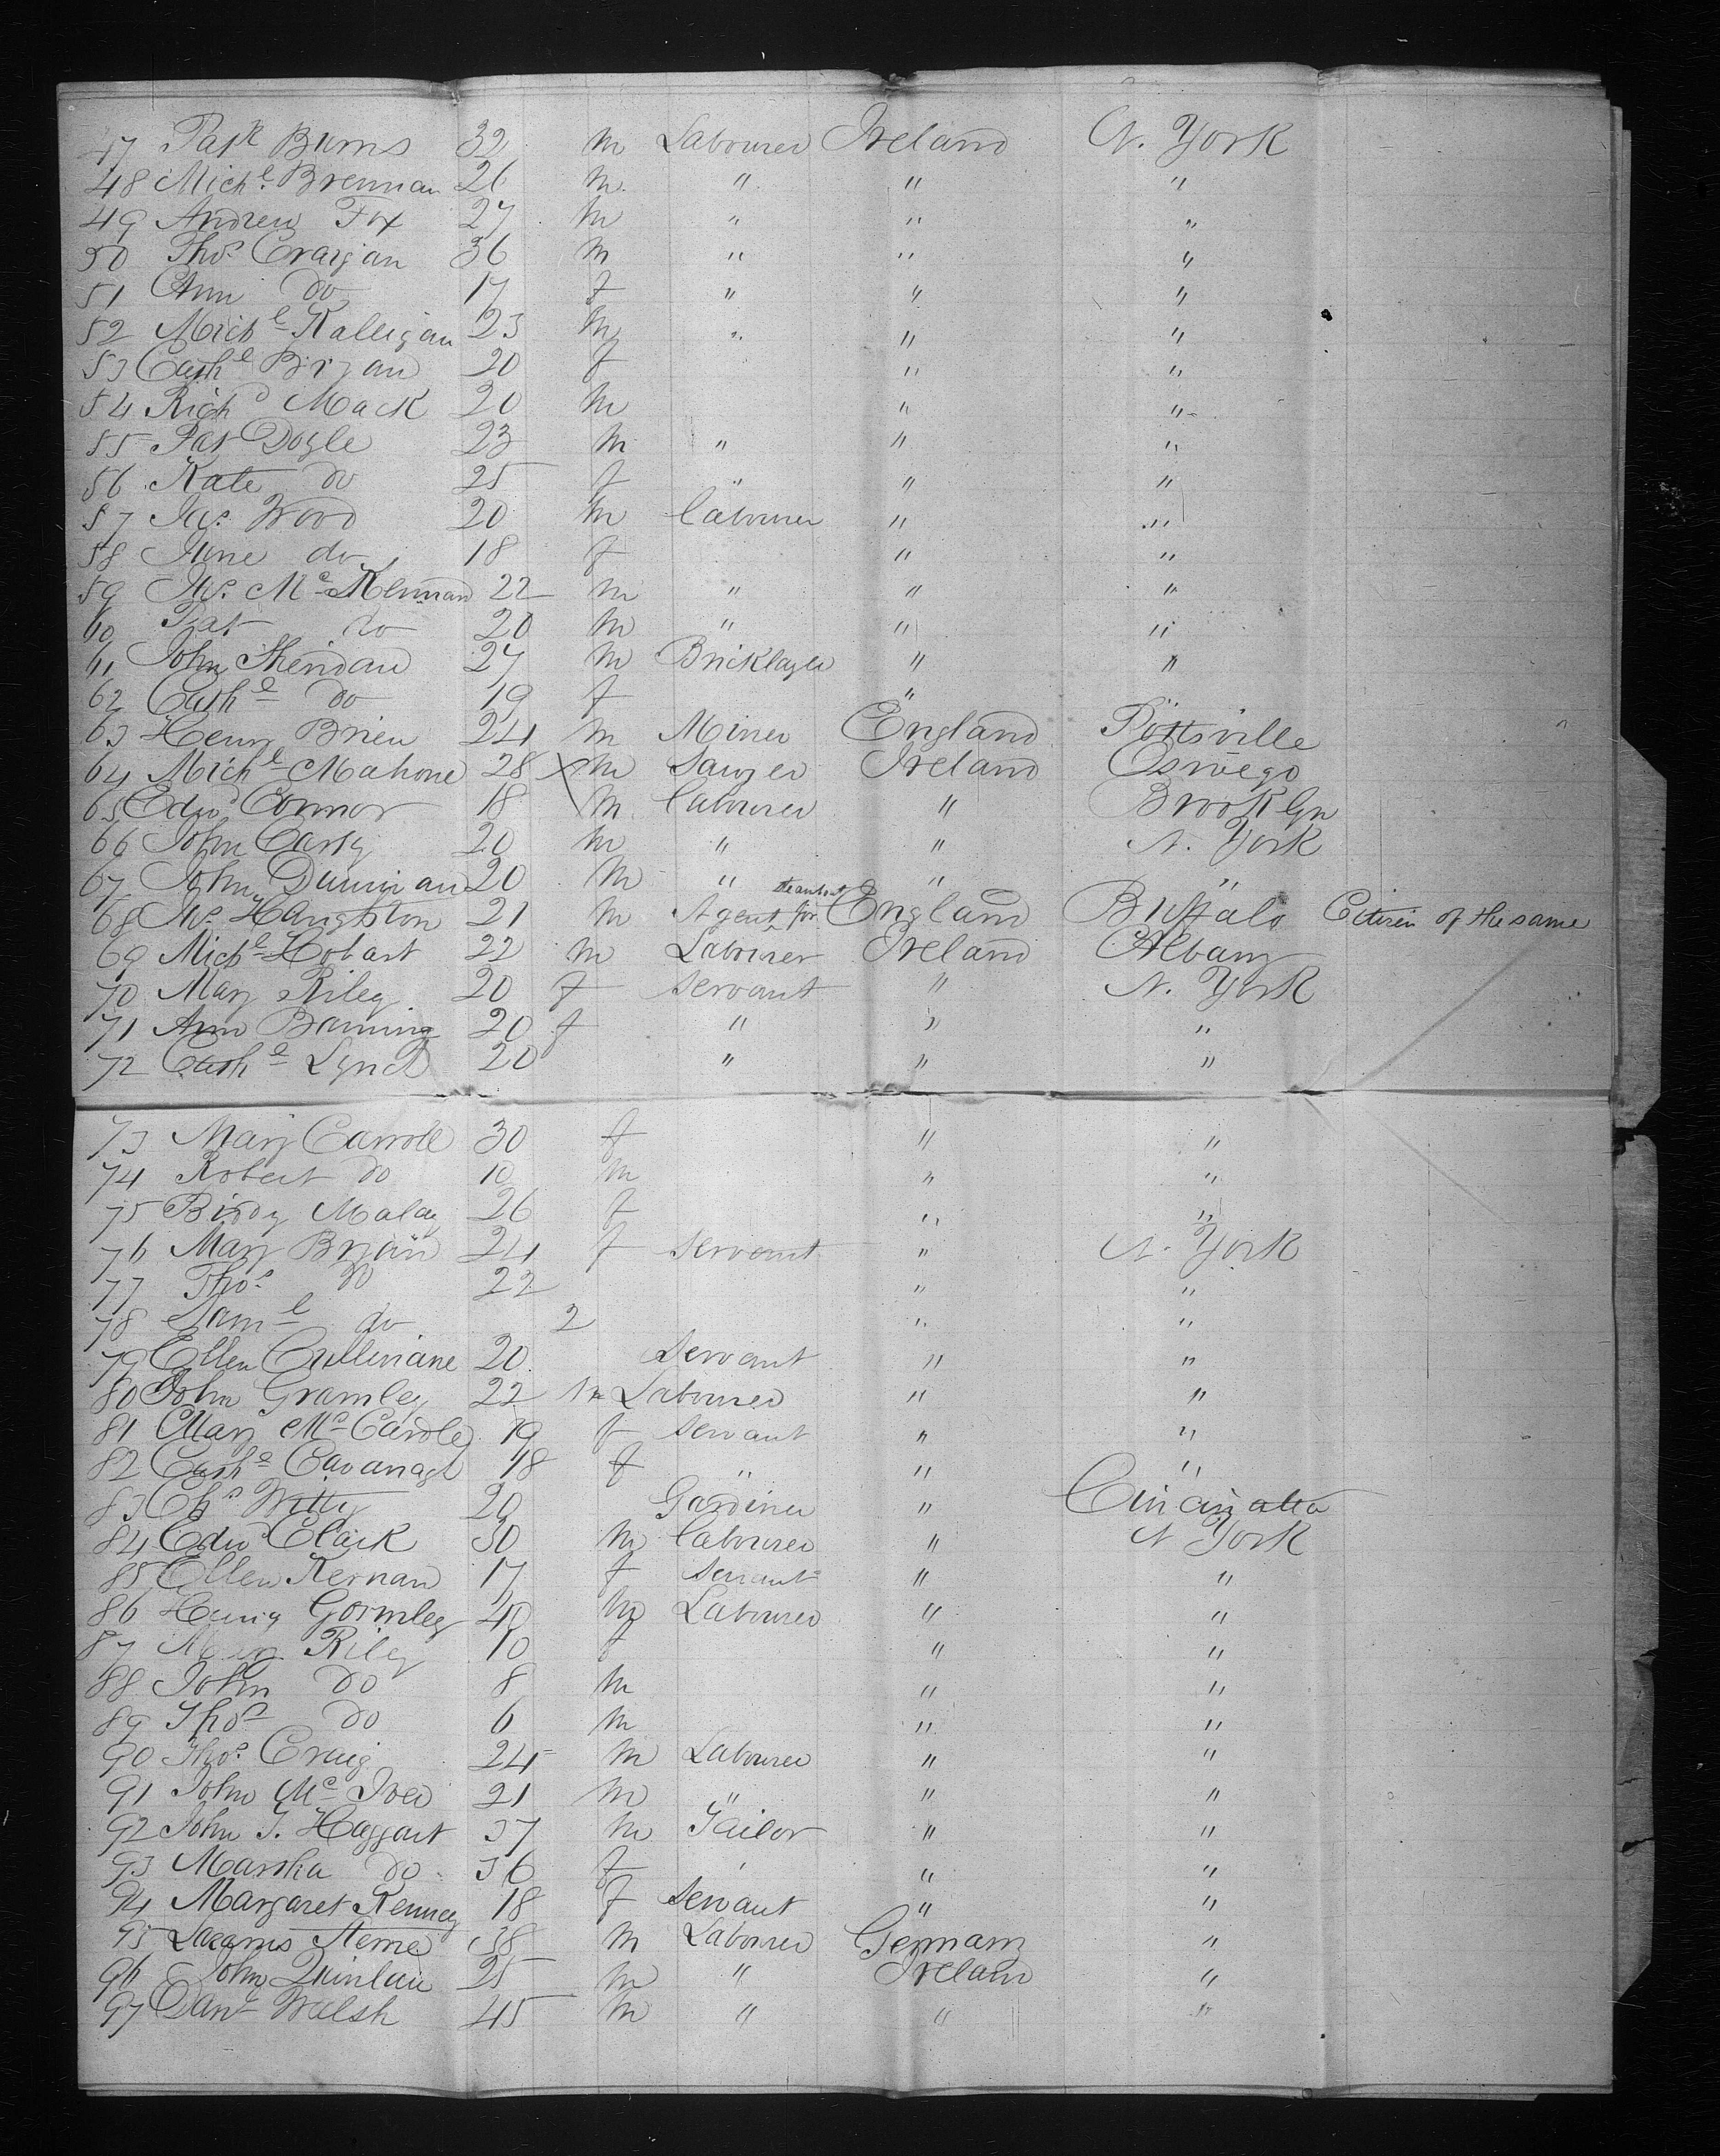 47 Patk Burns 32 m Labourer Ireland N. York
48 Michl Brennan 26 m " " "
49 Andrew Fox 27 m " " "
50 Thos Craigan 36 m " " "
51 Ann do 17 f " " "
52 Michl Kalligan 23 m " " "
53 Cathe Bryan 20 f " "
54 Richd Mack 20 m " "
55 Pat Doyle 23 m " " "
56 Kate do 25 f " " "
57 Jas. Wood 20 m Labourer " "
58 June do 18 f " "
59 Jas. Mc Kennan 22 m " " "
60 Pat do 20 m " " "
61 John Sheridan 27 m Bricklayer " "
62 Cathe do 19 f " "
63 Henry Brien 24 m Miner England Pottsville
64 Michl Mahone 28 x m Sawyer Ireland Oswego
65 Edwd Connor 18 m Labourer " Brooklyn
66 John Carty 20 m " " N. York
67 John Dunigan 20 m " " "
68 Jas. Haughton 21 m Agent for England Buffalo Citizen of the same
69 Michl Hobart 22 m Labourer Ireland Albany
70 Mary Riley 20 f Servant " N. York
71 Ann Banning 20 f " " "
72 Cathe Lynch 20 " " "
73 Mary Carroll 30 f " "
74 Robert do 10 m " "
75 Biddy Malay 26 f " "
76 Mary Bryan 24 f Servant " N. York
77 Thos do 22 " "
78 Saml do 2 " "
79 Ellen Cullinane 20 Servant " "
80 John Gramley 22 m Labourer " "
81 Mary Mc Cardle 19 f Servant " "
82 Cathe Cavanagh 18 f " " "
83 Chs Witty 20 Gardiner " Cincinatta
84 Edwd Clark 30 m Labourer " N York
85 Ellen Kernan 17 f Servant " "
86 Henry Gormley 40 m Labourer " "
87 Mary Riley 10 f " "
88 John do 8 m " "
89 Thos do 6 m " "
90 Thos. Craig 24 m Labourer " "
91 John Mc Iver 21 m " " "
92 John T. Haggart 37 m Tailor " "
93 Martha do 36 f " "
94 Margaret Kenney 18 f Servant " "
95 Lazarus Sterne 38 m Labourer Germany "
96 John Quinlan 25 m " Ireland "
97 Danl Walsh 45 m " " "